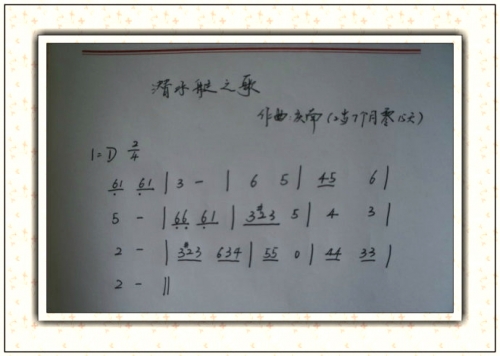 潜水艇之歌
作曲:庆南(2岁7个月零12天)
1=D 2/4
61 61 | 3 - | 6 5 | 45 6 |
5 - | 66 61 | 3#23 5 | 4 3 |
2 - | 3#23 634 | 55 0 | 44 33 |
2 - ‖